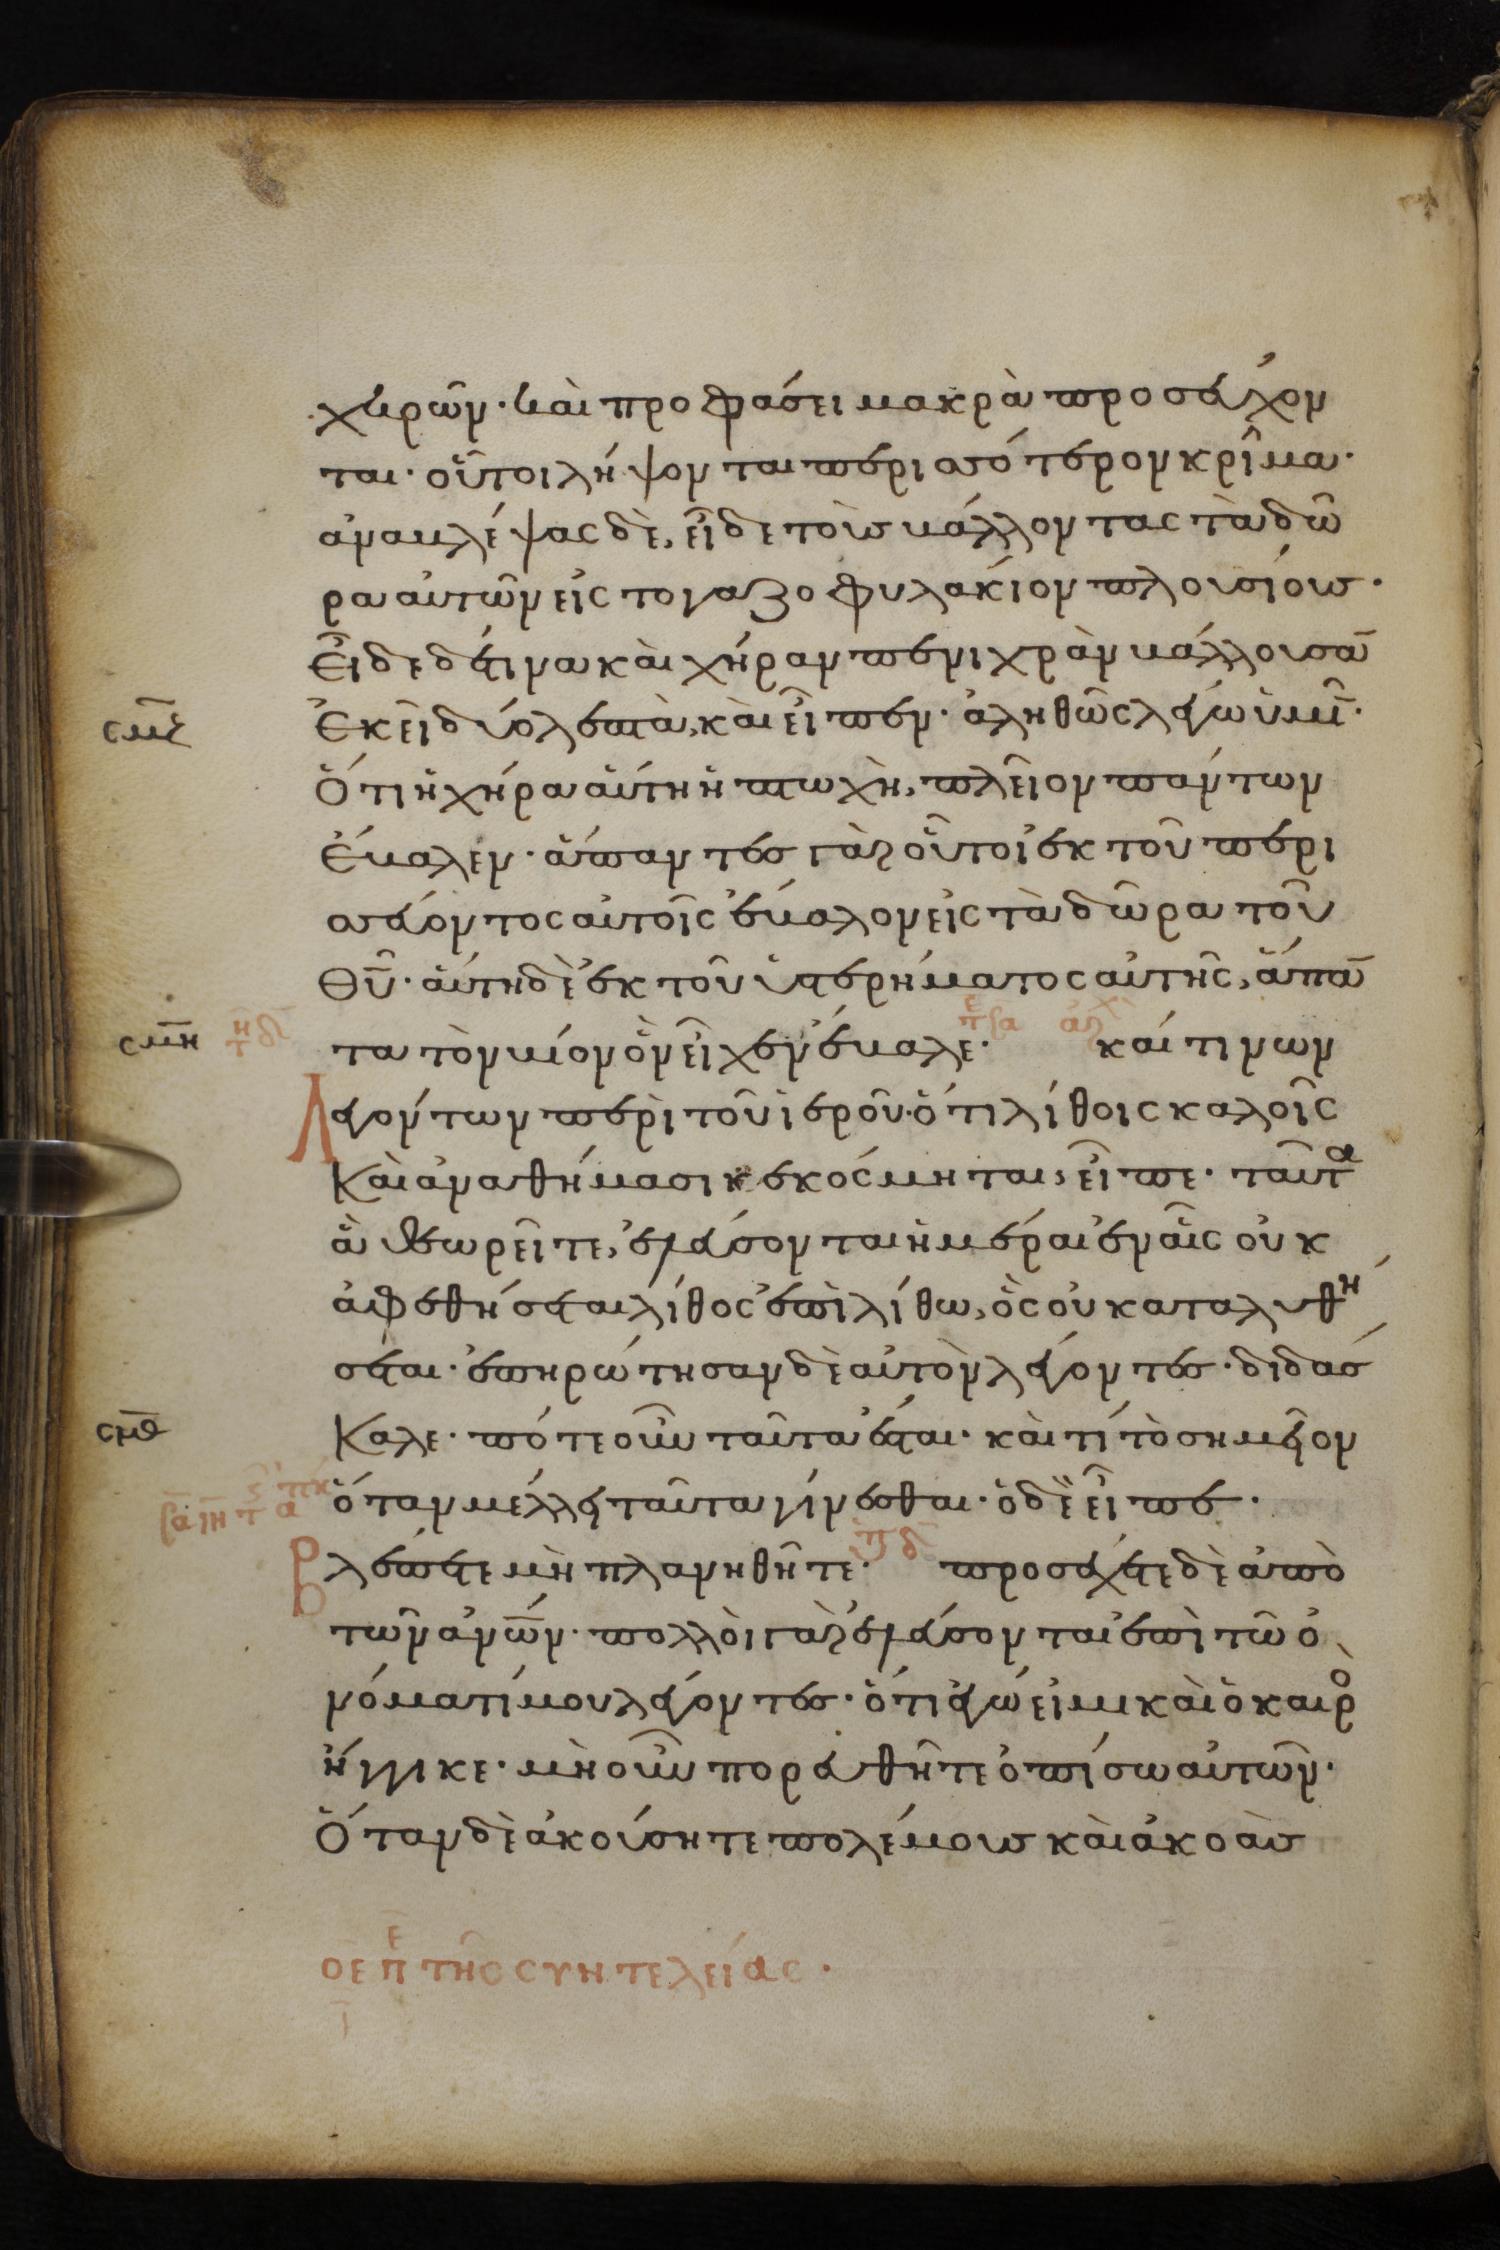 χηρῶν· καὶ προφάσει μακρὰ προσεύχον
ται· οὗτοι λήψονται περισσότερον κρῖμα·
ἀναβλέψας δὲ, εἶδε τοὺς βάλλοντας τὰ δῶ
ρα αὐτῶν εἰς το γαζοφυλάκιον πλουσίους·
Εἶδε δέ τινα καὶ χήραν πενιχρὰν βάλλουσα̅
Ἐκεῖ δύο λεπτὰ, καὶ εἶπεν· ἀληθῶς λέγω ὑμῖ̅·
σμζ
Ὅτι ἡ χήρα αὕτη ἡ πτωχὴ, πλεῖον πάντων
ἔβαλεν· ἅπαντες γὰρ οὗτοι ἐκ τοῦ περι
σσεύοντος αὐτοῖς ἔβαλον εἰς τὰ δῶρα τοῦ
Θ̅Υ̅· αὕτη δὲ ἐκ τοῦ ὑστερήματος αὐτῆς, ἅπα̅
τα τὸν βίον ὃν εἶχεν ἔβαλε· καί τινων
σμη
Λεγόντων περὶ τοῦ ἱεροῦ· ὅτι λίθοις καλοῖς
Καὶ ἀναθήμασι κεκόσμηται, εἶπε· ταῦτα
ἃ θεωρεῖτε, ἐλεύσονται ἡμέραι ἐν αἷς οὐκ
ἀφεθήσεται λίθος ἐπὶ λίθω, ὃς οὐ καταλυθή
σεται· ἐπηρώτησαν δὲ αὐτὸν λέγοντες· διδάσ
Καλε· πότε οὖν ταῦτα ἔσται· καὶ τί τὸ σημεῖον
σμθ
ὅταν μέλλει ταῦτα γίνεσθαι· ὁ δὲ εἶπε·
Βλέπετε μὴ πλανηθῆτε· προσέχετε δὲ ἀπὸ
τῶν ἀν̅ω̅ν· πολλοὶ γὰρ ἐλεύσονται ἐπὶ τῶ ὀ
νόματί μου λέγοντες· ὅτι ἐγώ εἰμι καὶ ὁ καιρὸ
ἤγγικε· μὴ οὖν πορευθῆτε ὀπίσω αὐτῶν·
Ὅταν δὲ ἀκούσητε πολέμους καὶ ἀκοὰς
ΟΕ π̅ε̅ τῆς συντελείας·